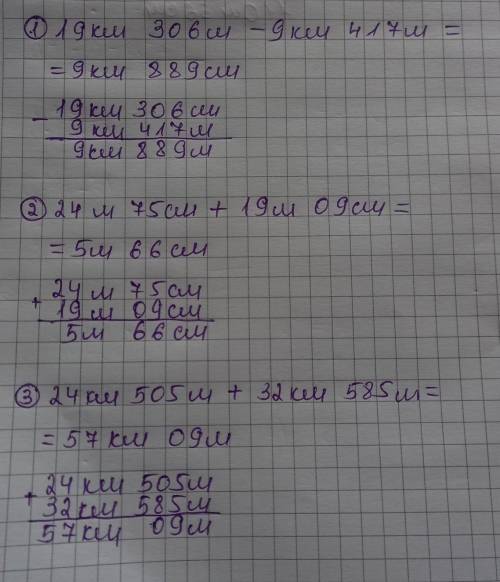 ① 19км 306м - 9км 417м =
= 9км 889см
- 19км 306см
9км 417м
9см 889м
② 24 м 75см + 19м 09см =
= 5м 66см
+ 24 м 75см
19 м 09см
5м 66см
③ 24км 505м + 32км 585м =
= 57км 09м
+ 24км 505м
32км 585м
57км 09м